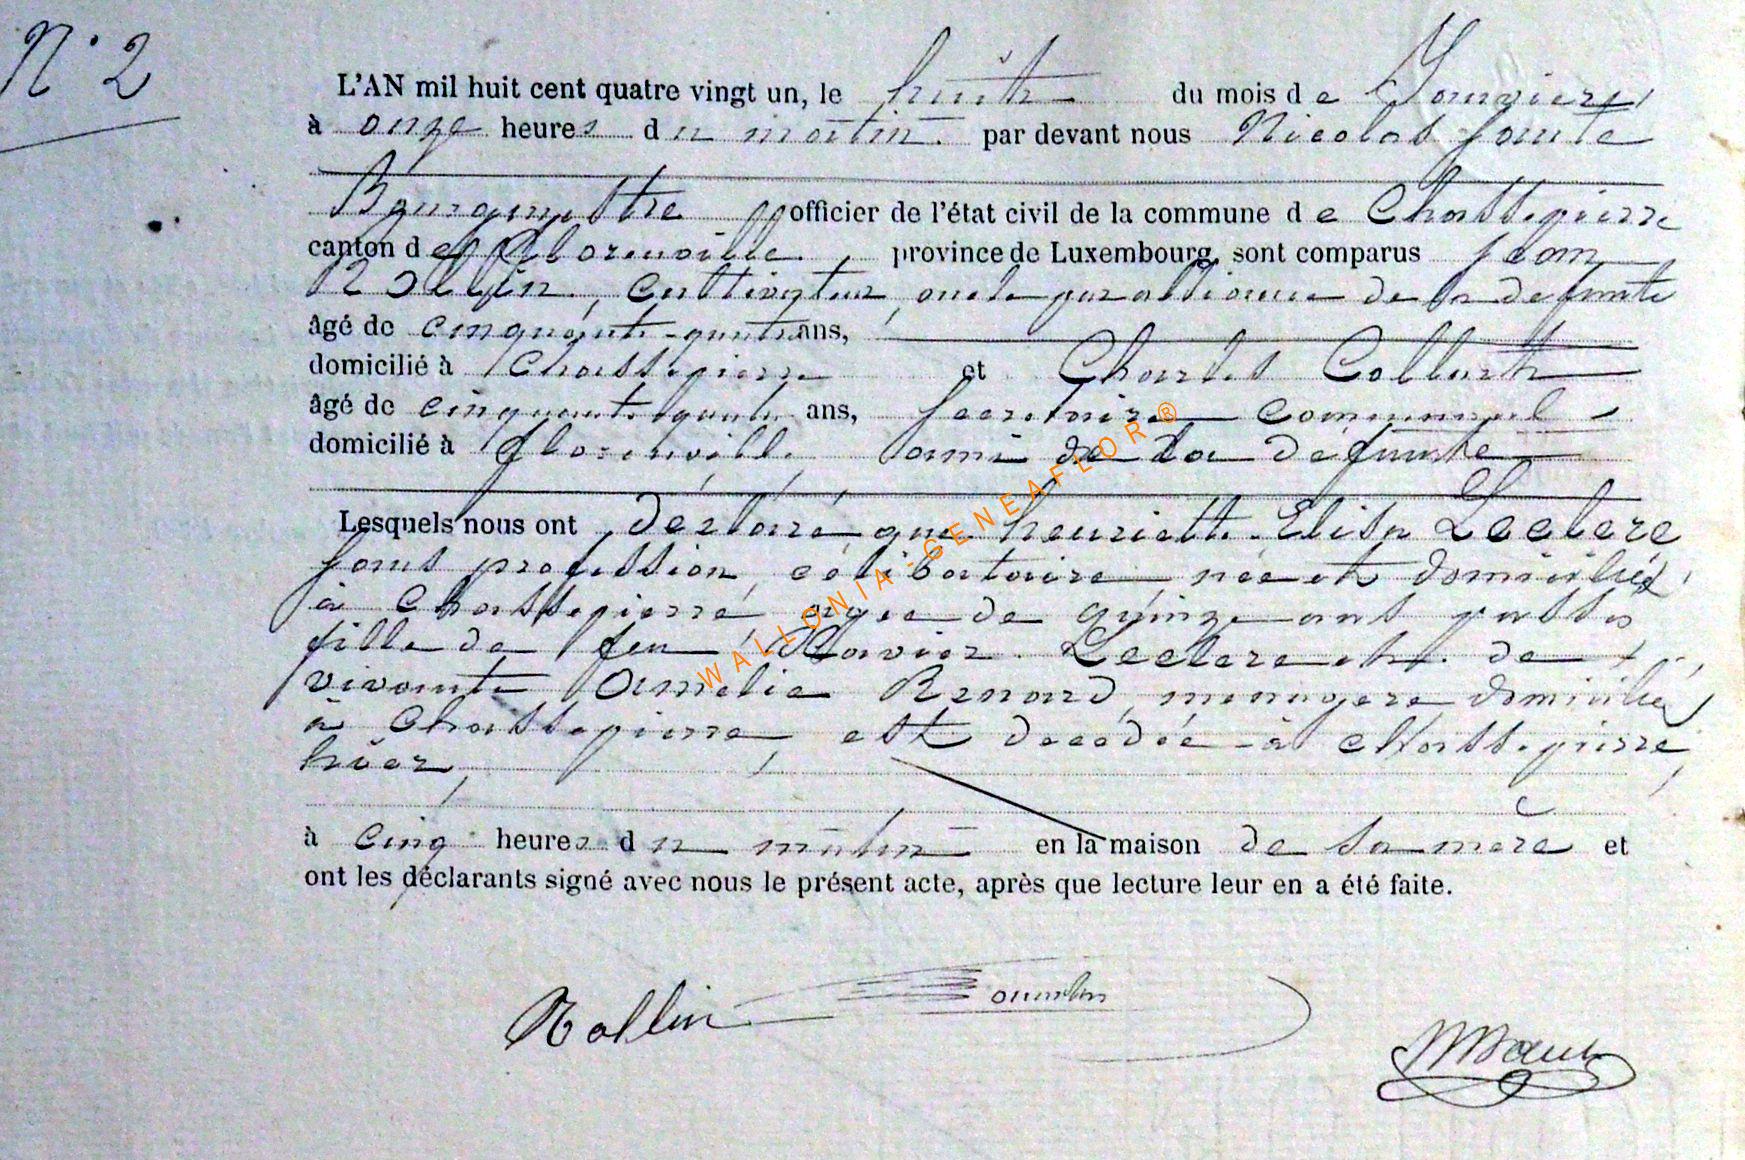 N° 2
L'AN mil huit cent quatre vingt un, le huit du mois de Janvier,
à onze heures du matin. par devant nous Nicolas
Bourgmestre officier de l'état civil de la commune de Chassepierre
canton de Florenville. province de Luxembourg, sont comparus Jean
Rollin, Cultivateur, oncle par alliance de la defunte
âgé de cinquante-quatre ans,
domicilié à Chassepierre et Charles
âgé de cinquante ans, secretaire communal
domicilié à florenville, ami de la défunte
Lesquels nous ont déclaré que henriette Elisa Leclere
sans profession, célibataire née et domiciliée,
à Chassepierre, agée de quinze ans passés
fille de feu Xavier Leclere et de
vivante Amelie Renard, menagere domiciliée
à Chassepierre, est decedée à Chassepierre,
hier,
à cinq heures du matin en la maison de sa mère et
ont les déclarants signé avec nous le présent acte, après que lecture leur en a été faite.
Rollin
WALLONIA-GENEAFLOR®